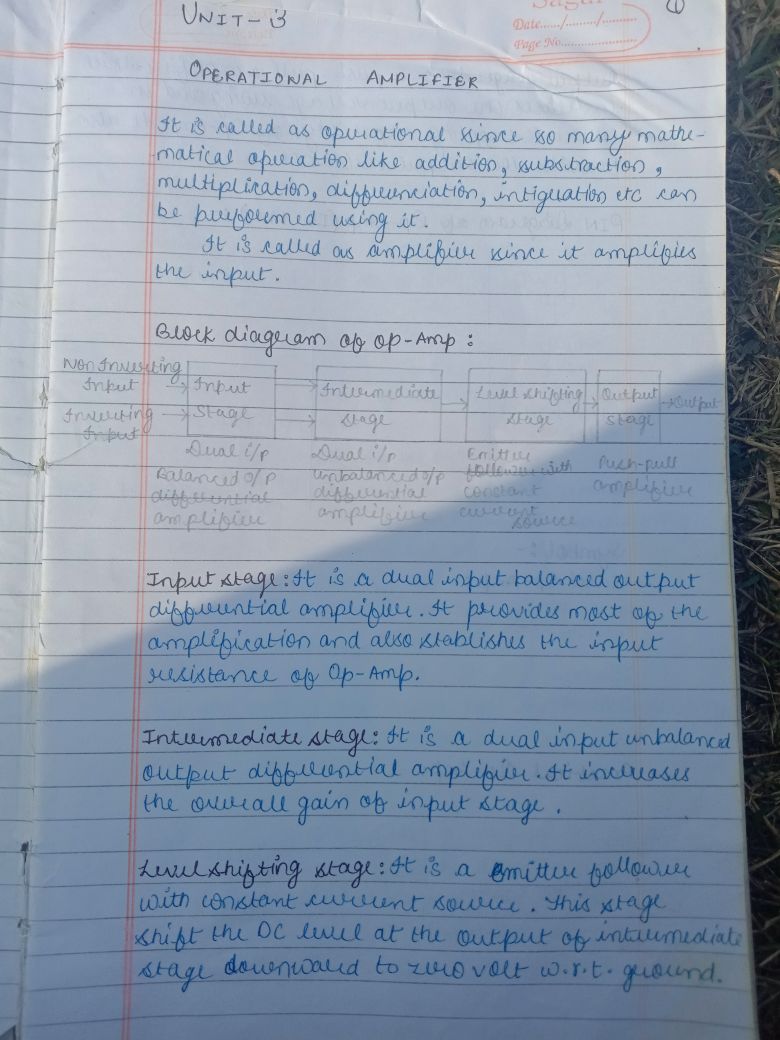 UNIT-3
Sagar
Date....../........./..........
Page No......................
1
OPERATIONAL AMPLIFIER
It is called as operational since so many mathe-
matical operation like addition, substraction,
multiplication, differenciation, intigration etc can
be performed using it.
It is called as amplifier since it amplifies
the input.
Block diagram of Op-Amp :
Non Inverting
Input → Input → Intermediate → Level shifting → Output → Output
Inverting → Stage → stage stage stage
Input
Dual i/p Dual i/p Emitter
Balanced o/p unbalanced o/p follower with Push-pull
differential differential constant amplifier
amplifier amplifier current source
Input stage: It is a dual input balanced output
differential amplifier. It provides most of the
amplification and also stablishes the input
resistance of Op-Amp.
Intermediate stage: It is a dual input unbalanced
output differential amplifier. It increases
the overall gain of input stage.
Level shifting stage: It is a emitter follower
with constant current source. This stage
shift the DC level at the output of intermediate
stage downward to zero volt w.r.t. ground.